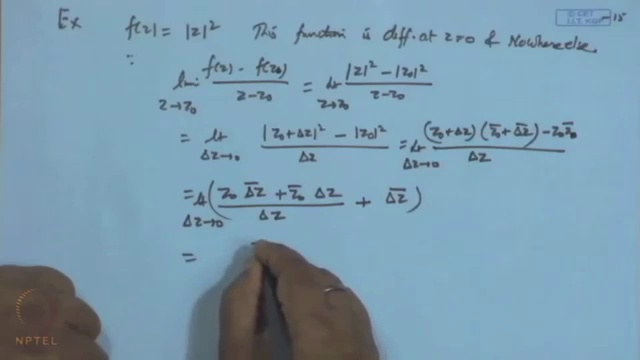 Ex f(z) = |z|² This function is diff. at z=0 & Nowhere else.
© CET
I.I.T. KGP
∵ lim z→z₀ (f(z) - f(z₀))/(z - z₀) = lt z→z₀ (|z|² - |z₀|²)/(z - z₀)
= lt Δz→0 (|z₀+Δz|² - |z₀|²)/Δz = lt Δz→0 ((z₀+Δz)(z̄₀+Δ̅z̅) - z₀z̄₀)/Δz
= lt Δz→0 ((z₀ Δ̅z̅ + z̄₀ Δz)/Δz + Δ̅z̅)
=
NPTEL